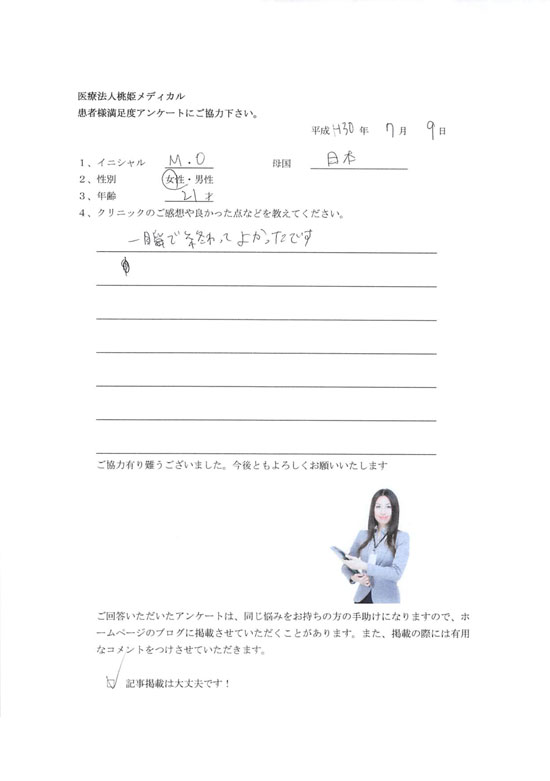 医療法人桃姫メディカル
患者様満足度アンケートにご協力下さい。
平成 H30 年 7 月 9 日
1、イニシャル M.O 母国 日本
2、性別 女性・男性
3、年齢 21才
4、クリニックのご感想や良かった点などを教えてください。
一瞬で終わってよかったです
ご協力有り難うございました。今後ともよろしくお願いいたします
ご回答いただいたアンケートは、同じ悩みをお持ちの方の手助けになりますので、ホ
ームページのブログに掲載させていただくことがあります。また、掲載の際には有用
なコメントをつけさせていただきます。
記事掲載は大丈夫です！